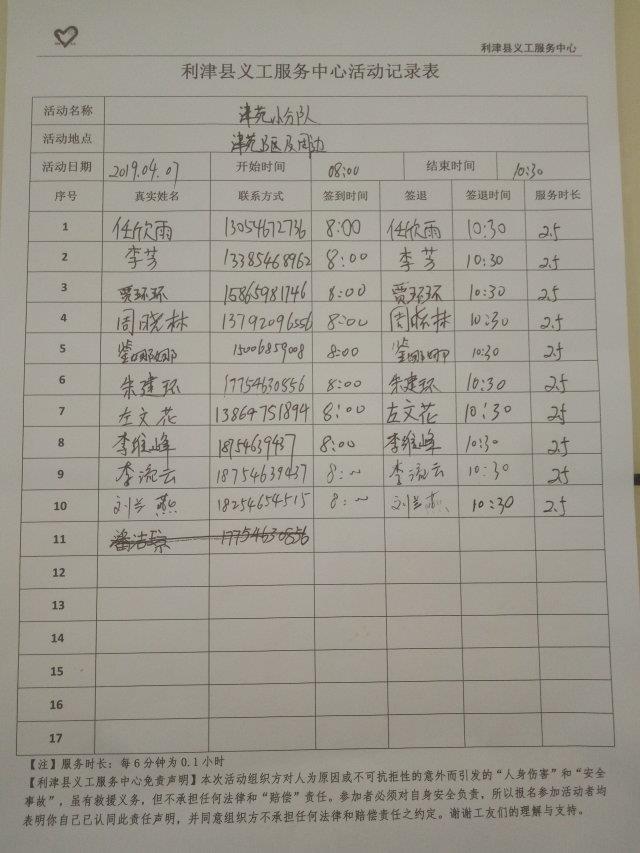 利津县义工服务中心
利津县义工服务中心活动记录表
活动名称 津苑小分队
活动地点 津苑小区及周边
活动日期 2019.04.07 开始时间 08:00 结束时间 10:30
序号 真实姓名 联系方式 签到时间 签退 签退时间 服务时长
1 任欣雨 13054672736 8:00 任欣雨 10:30 2.5
2 李芳 13385468962 8:00 李芳 10:30 2.5
3 贾环环 15865981746 8:00 贾环环 10:30 2.5
4 周晓林 13792096556 8:00 周晓林 10:30 2.5
5 娜娜 15006859008 8:00 娜娜 10:30 2.5
6 朱建环 17754630856 8:00 朱建环 10:30 2.5
7 左文花 13864751894 8:00 左文花 10:30 25
8 李维峰 18754639437 8:00 李维峰 10:30 2.5
9 李流云 18754639437 8:~ 李流云 10:30 25
10 刘兰燕 18254654515 8:~ 刘兰燕 10:30 2.5
11 潘洁琼 17754630856
12
13
14
15
16
17
【注】服务时长：每6分钟为0.1小时
【利津县义工服务中心免责声明】本次活动组织方对人为原因或不可抗拒性的意外而引发的“人身伤害”和“安全
事故”，虽有救援义务，但不承担任何法律和“赔偿”责任。参加者必须对自身安全负责，所以报名参加活动者均
表明你自己已认同此责任声明，并同意组织方不承担任何法律和赔偿责任之约定。谢谢工友们的理解与支持。